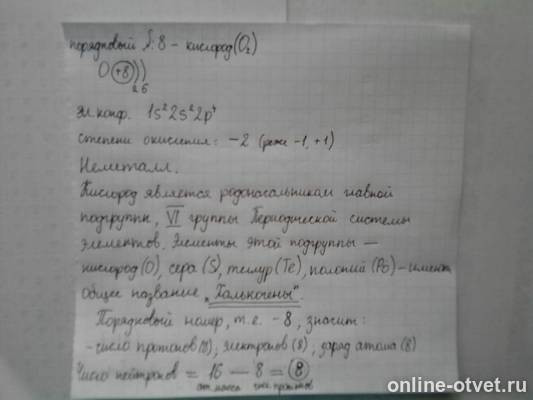 порядковый №: 8 – кислород (O₂)
O (+8) ) )
2 6
Эл. конф. 1s² 2s² 2p⁴
степени окисления: –2 (реже –1, +1)
Неметалл.
Кислород является родоначальником главной
подгруппы, VI группы Периодической системы
элементов. Элементы этой подгруппы –
кислород (O), сера (S), теллур (Te), полоний (Po) – имеют
общее название „Халькогены".
Порядковый номер, т.е. – 8, значит:
– число протонов (8), электронов (8), заряд атома (8)
Число нейтронов = 16 – 8 = 8
ат. масса число протонов
online-otvet.ru